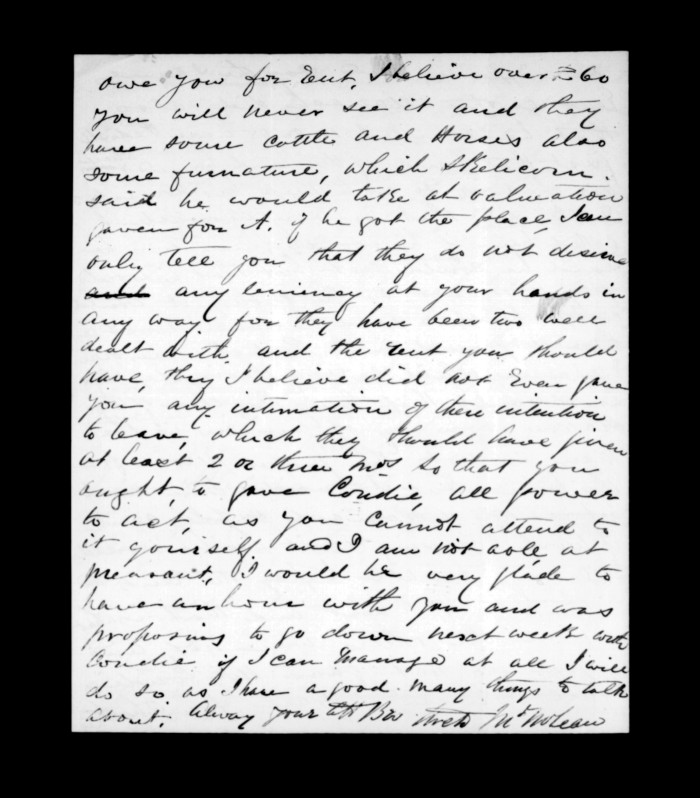 owe you for Rent, I believe over £60
you will never see it and they
have some cattle and Horses also
some furnature, which Skelicorn.
said he would take at valuation
gaven for A. if he got the place, I can
only tell you that they do not desirve
and any leniency at your hands in
any way for they have been two well
dealt with, and the rent you should
have, they I believe did not Even gave
you any intimation of there intention
to leave, which they should have given
at least 2 or three mos so that you
ought, to gave Condie, all power
to act, as you Cannot attend to
it yourself, and I am not able, at
preasant, I would be very glade to
have an hour with you and was
proposing to go down next week with
Condie if I can Manage at all I will
do so as I have a good many things to talk
about. Alway your Bro